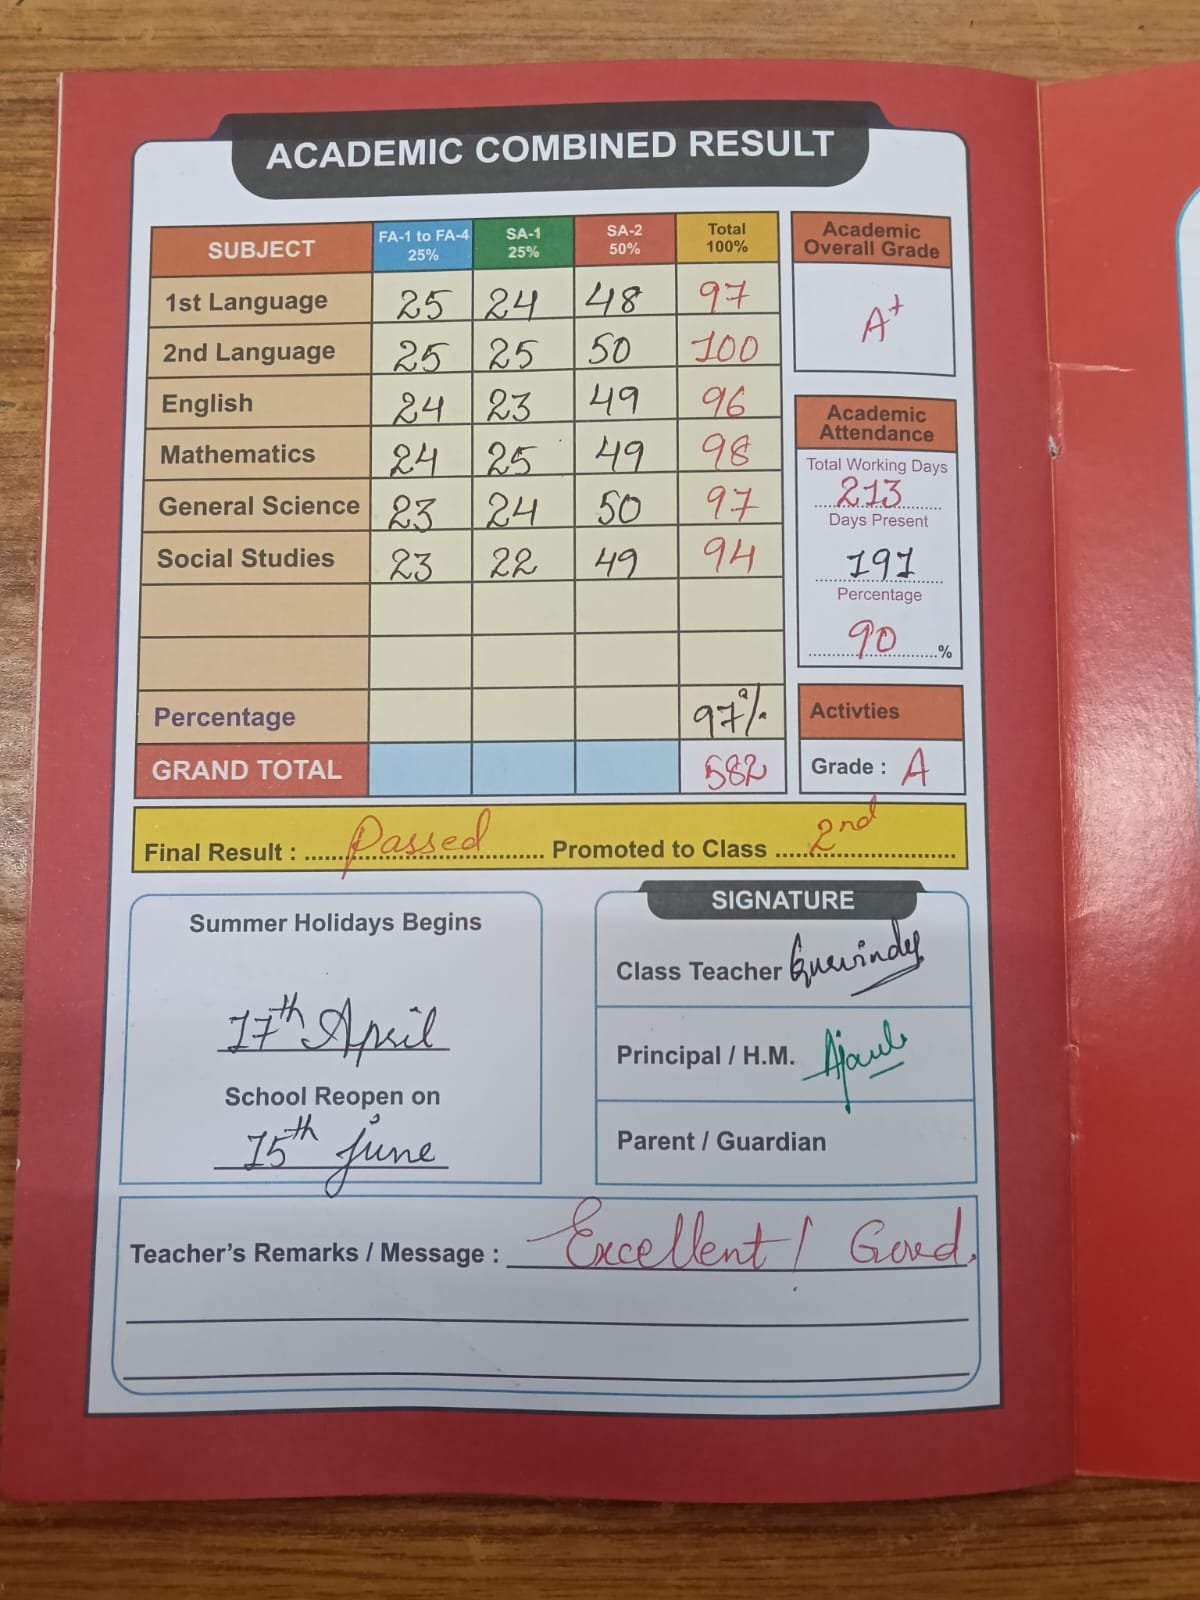 ACADEMIC COMBINED RESULT
SUBJECT FA-1 to FA-4 25% SA-1 25% SA-2 50% Total 100%
1st Language 25 24 48 97
2nd Language 25 25 50 100
English 24 23 49 96
Mathematics 24 25 49 98
General Science 23 24 50 97
Social Studies 23 22 49 94
Percentage 97%
GRAND TOTAL 582
Academic
Overall Grade
A+
Academic
Attendance
Total Working Days
213
Days Present
191
Percentage
90 %
Activties
Grade : A
Final Result : Passed Promoted to Class 2nd
Summer Holidays Begins
17th April
School Reopen on
15th june
SIGNATURE
Class Teacher
Principal / H.M.
Parent / Guardian
Teacher's Remarks / Message : Excellent! Good.